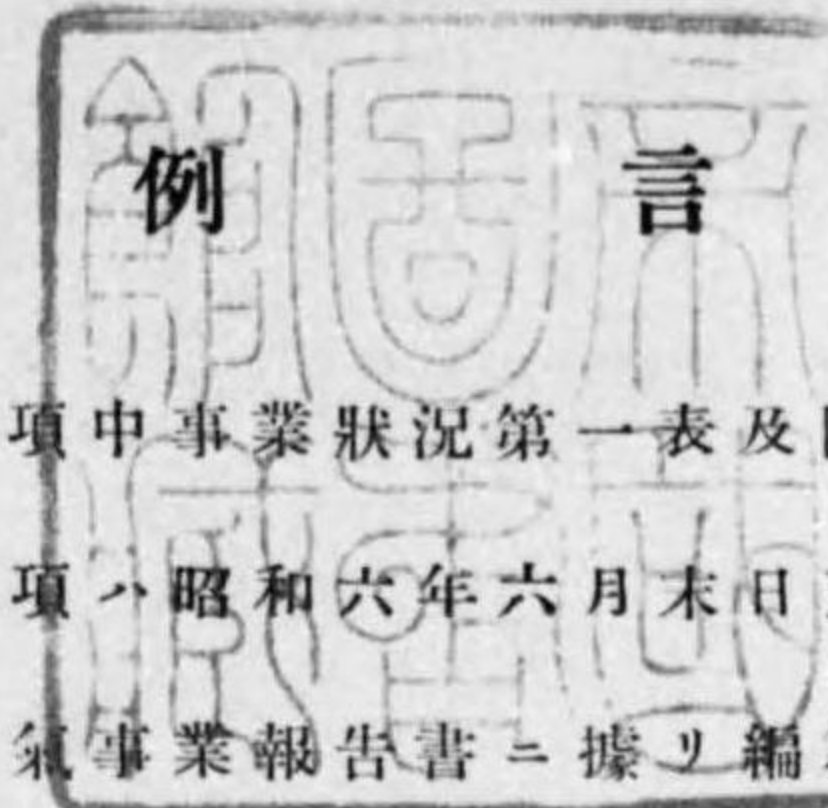 例言
項中事業狀況第一表及
項ハ昭和六年六月末日
氣事業報告書ニ據リ編